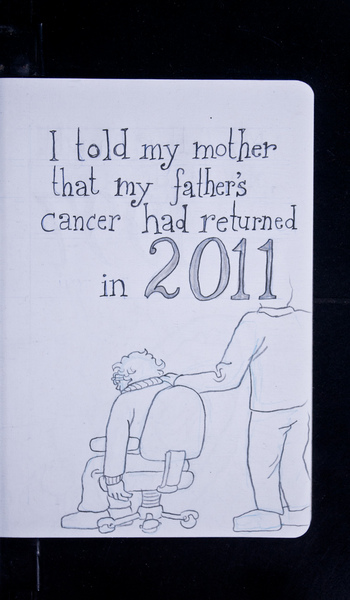 I told my mother
that my father's
cancer had returned
in 2011